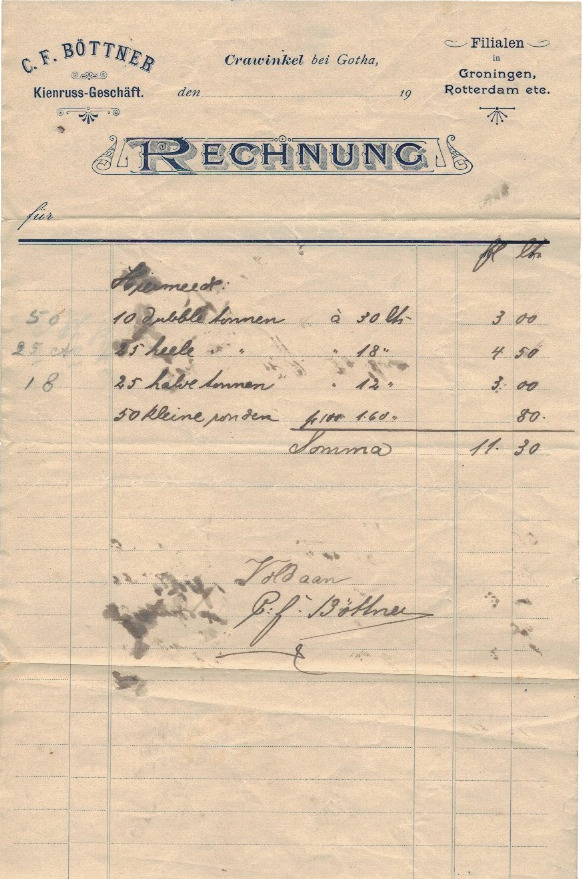 C. F. BÖTTNER
Kienruss-Geschäft.
Crawinkel bei Gotha,
den 19
Filialen
in
Groningen,
Rotterdam etc.
RECHNUNG
für
fl cts
Hiermeede:
50 10 dubble tonnen à 30 cts 3 00
25 25 heele " " 18 " 4 50
18 25 halve tonnen " 12 " 3. 00
50 kleine ronden pr 100 1.60 " 80.
Somma 11. 30
Voldaan
C. F. Böttner